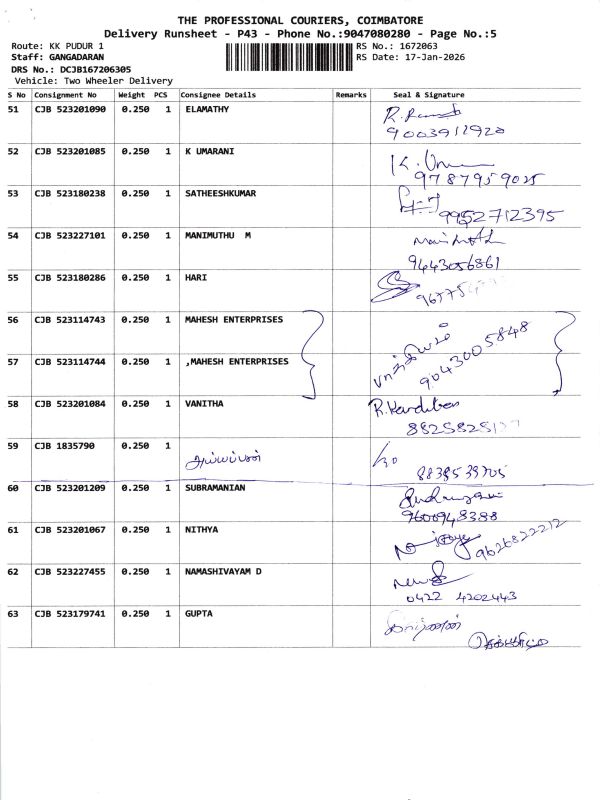 THE PROFESSIONAL COURIERS, COIMBATORE
Delivery Runsheet - P43 - Phone No.:9047080280 - Page No.:5
Route: KK PUDUR 1 RS No.: 1672063
Staff: GANGADARAN RS Date: 17-Jan-2026
DRS No.: DCJB167206305
Vehicle: Two Wheeler Delivery
S No Consignment No Weight PCS Consignee Details Remarks Seal & Signature
51 CJB 523201090 0.250 1 ELAMATHY
9003911920
52 CJB 523201085 0.250 1 K UMARANI
9787959025
53 CJB 523180238 0.250 1 SATHEESHKUMAR
9952712395
54 CJB 523227101 0.250 1 MANIMUTHU M
9443056861
55 CJB 523180286 0.250 1 HARI
56 CJB 523114743 0.250 1 MAHESH ENTERPRISES
9043005848
57 CJB 523114744 0.250 1 ,MAHESH ENTERPRISES
58 CJB 523201084 0.250 1 VANITHA
59 CJB 1835790 1
அய்யப்பன்
8838539705
60 CJB 523201209 0.250 1 SUBRAMANIAN
9600948388
61 CJB 523201067 0.250 1 NITHYA
9626822212
62 CJB 523227455 0.250 1 NAMASHIVAYAM D
0422 4202443
63 CJB 523179741 0.250 1 GUPTA